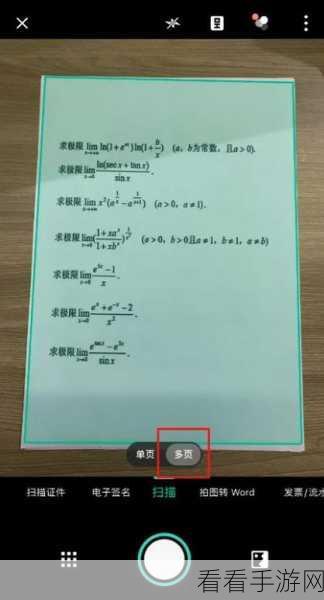 求极限 lim x→+∞ ln(1+e^{ax})ln(1+b/x) (a, b为常数, 且a>0).
求极限 lim x→0 ln(sec x+tan x)/sin x.
求极限 lim x→+∞ x²(a^{1/x}-a^{1/(x+1)}) (a>0, a≠1).
求极限 lim x→0 ((1+xa^x)/(1+xb^x))^{1/x²} (a>0, b>0且a≠1, b≠1, a≠b)
求极限 lim x→0 (e^{5x}-1)/x.
求极限 lim x→0 (e^x+e^{-x}-2)/x².
求极限 lim x→0
单页 多页
扫描证件 电子签名 扫描 拍图转 Word 发票/流水
看看手游网